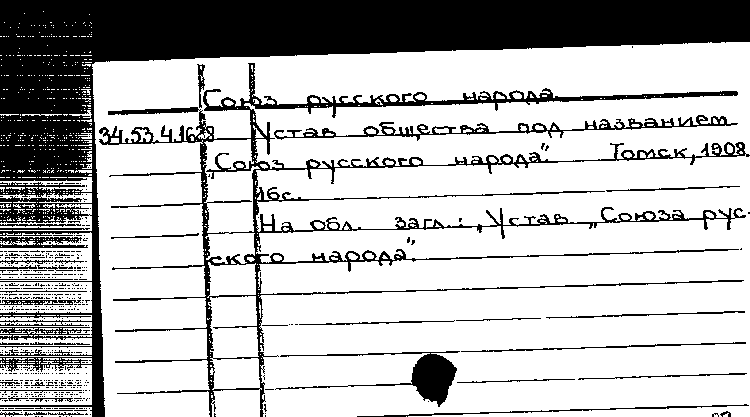 Союз русского народа.
34.53.4.1628 Устав общества под названием
„Союз русского народа". Томск, 1908
16с.
На обл. загл.: „Устав „Союза рус-
ского народа".